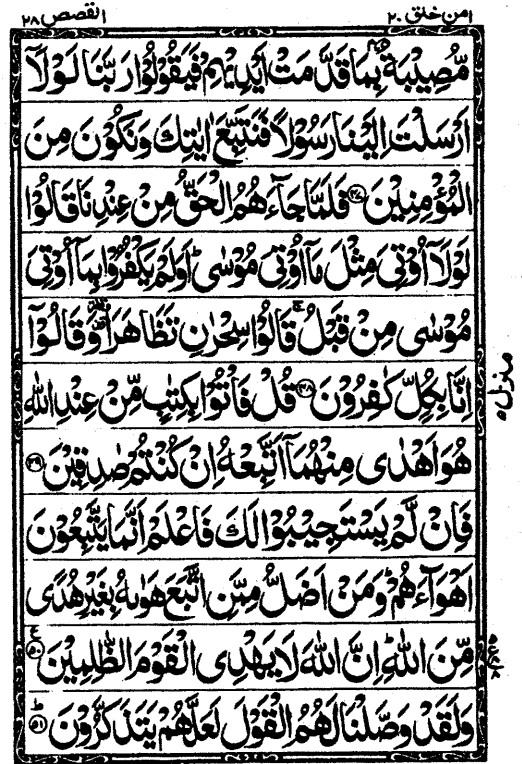 امن خلق ٢٠ القصص ٢٨
مُّصِيْبَةٌۢ بِمَا قَدَّمَتْ اَيْدِيْهِمْ فَيَقُوْلُوْا رَبَّنَا لَوْلَاۤ
اَرْسَلْتَ اِلَيْنَا رَسُوْلًا فَنَتَّبِعَ اٰيٰتِكَ وَنَكُوْنَ مِنَ
الْمُؤْمِنِيْنَ ٤٧ فَلَمَّا جَآءَهُمُ الْحَقُّ مِنْ عِنْدِنَا قَالُوْا
لَوْلَاۤ اُوْتِيَ مِثْلَ مَاۤ اُوْتِيَ مُوْسٰىؕ اَوَلَمْ يَكْفُرُوْا بِمَاۤ اُوْتِيَ
مُوْسٰى مِنْ قَبْلُۚ قَالُوْا سِحْرٰنِ تَظَاهَرَاࣞ وَقَالُوْۤا
اِنَّا بِكُلٍّ كٰفِرُوْنَ ٤٨ قُلْ فَاْتُوْا بِكِتٰبٍ مِّنْ عِنْدِ اللّٰهِ
هُوَ اَهْدٰى مِنْهُمَاۤ اَتَّبِعْهُ اِنْ كُنْتُمْ صٰدِقِيْنَ ٤٩
فَاِنْ لَّمْ يَسْتَجِيْبُوْا لَكَ فَاعْلَمْ اَنَّمَا يَتَّبِعُوْنَ
اَهْوَآءَهُمْؕ وَمَنْ اَضَلُّ مِمَّنِ اتَّبَعَ هَوٰىهُ بِغَيْرِ هُدًى
مِّنَ اللّٰهِؕ اِنَّ اللّٰهَ لَا يَهْدِى الْقَوْمَ الظّٰلِمِيْنَ ٥٠
وَلَقَدْ وَصَّلْنَا لَهُمُ الْقَوْلَ لَعَلَّهُمْ يَتَذَكَّرُوْنَؕ ٥١
منزل ٥